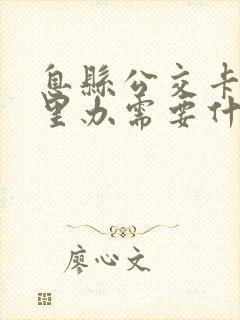 息縣公交卡
里办需要什
廖心文